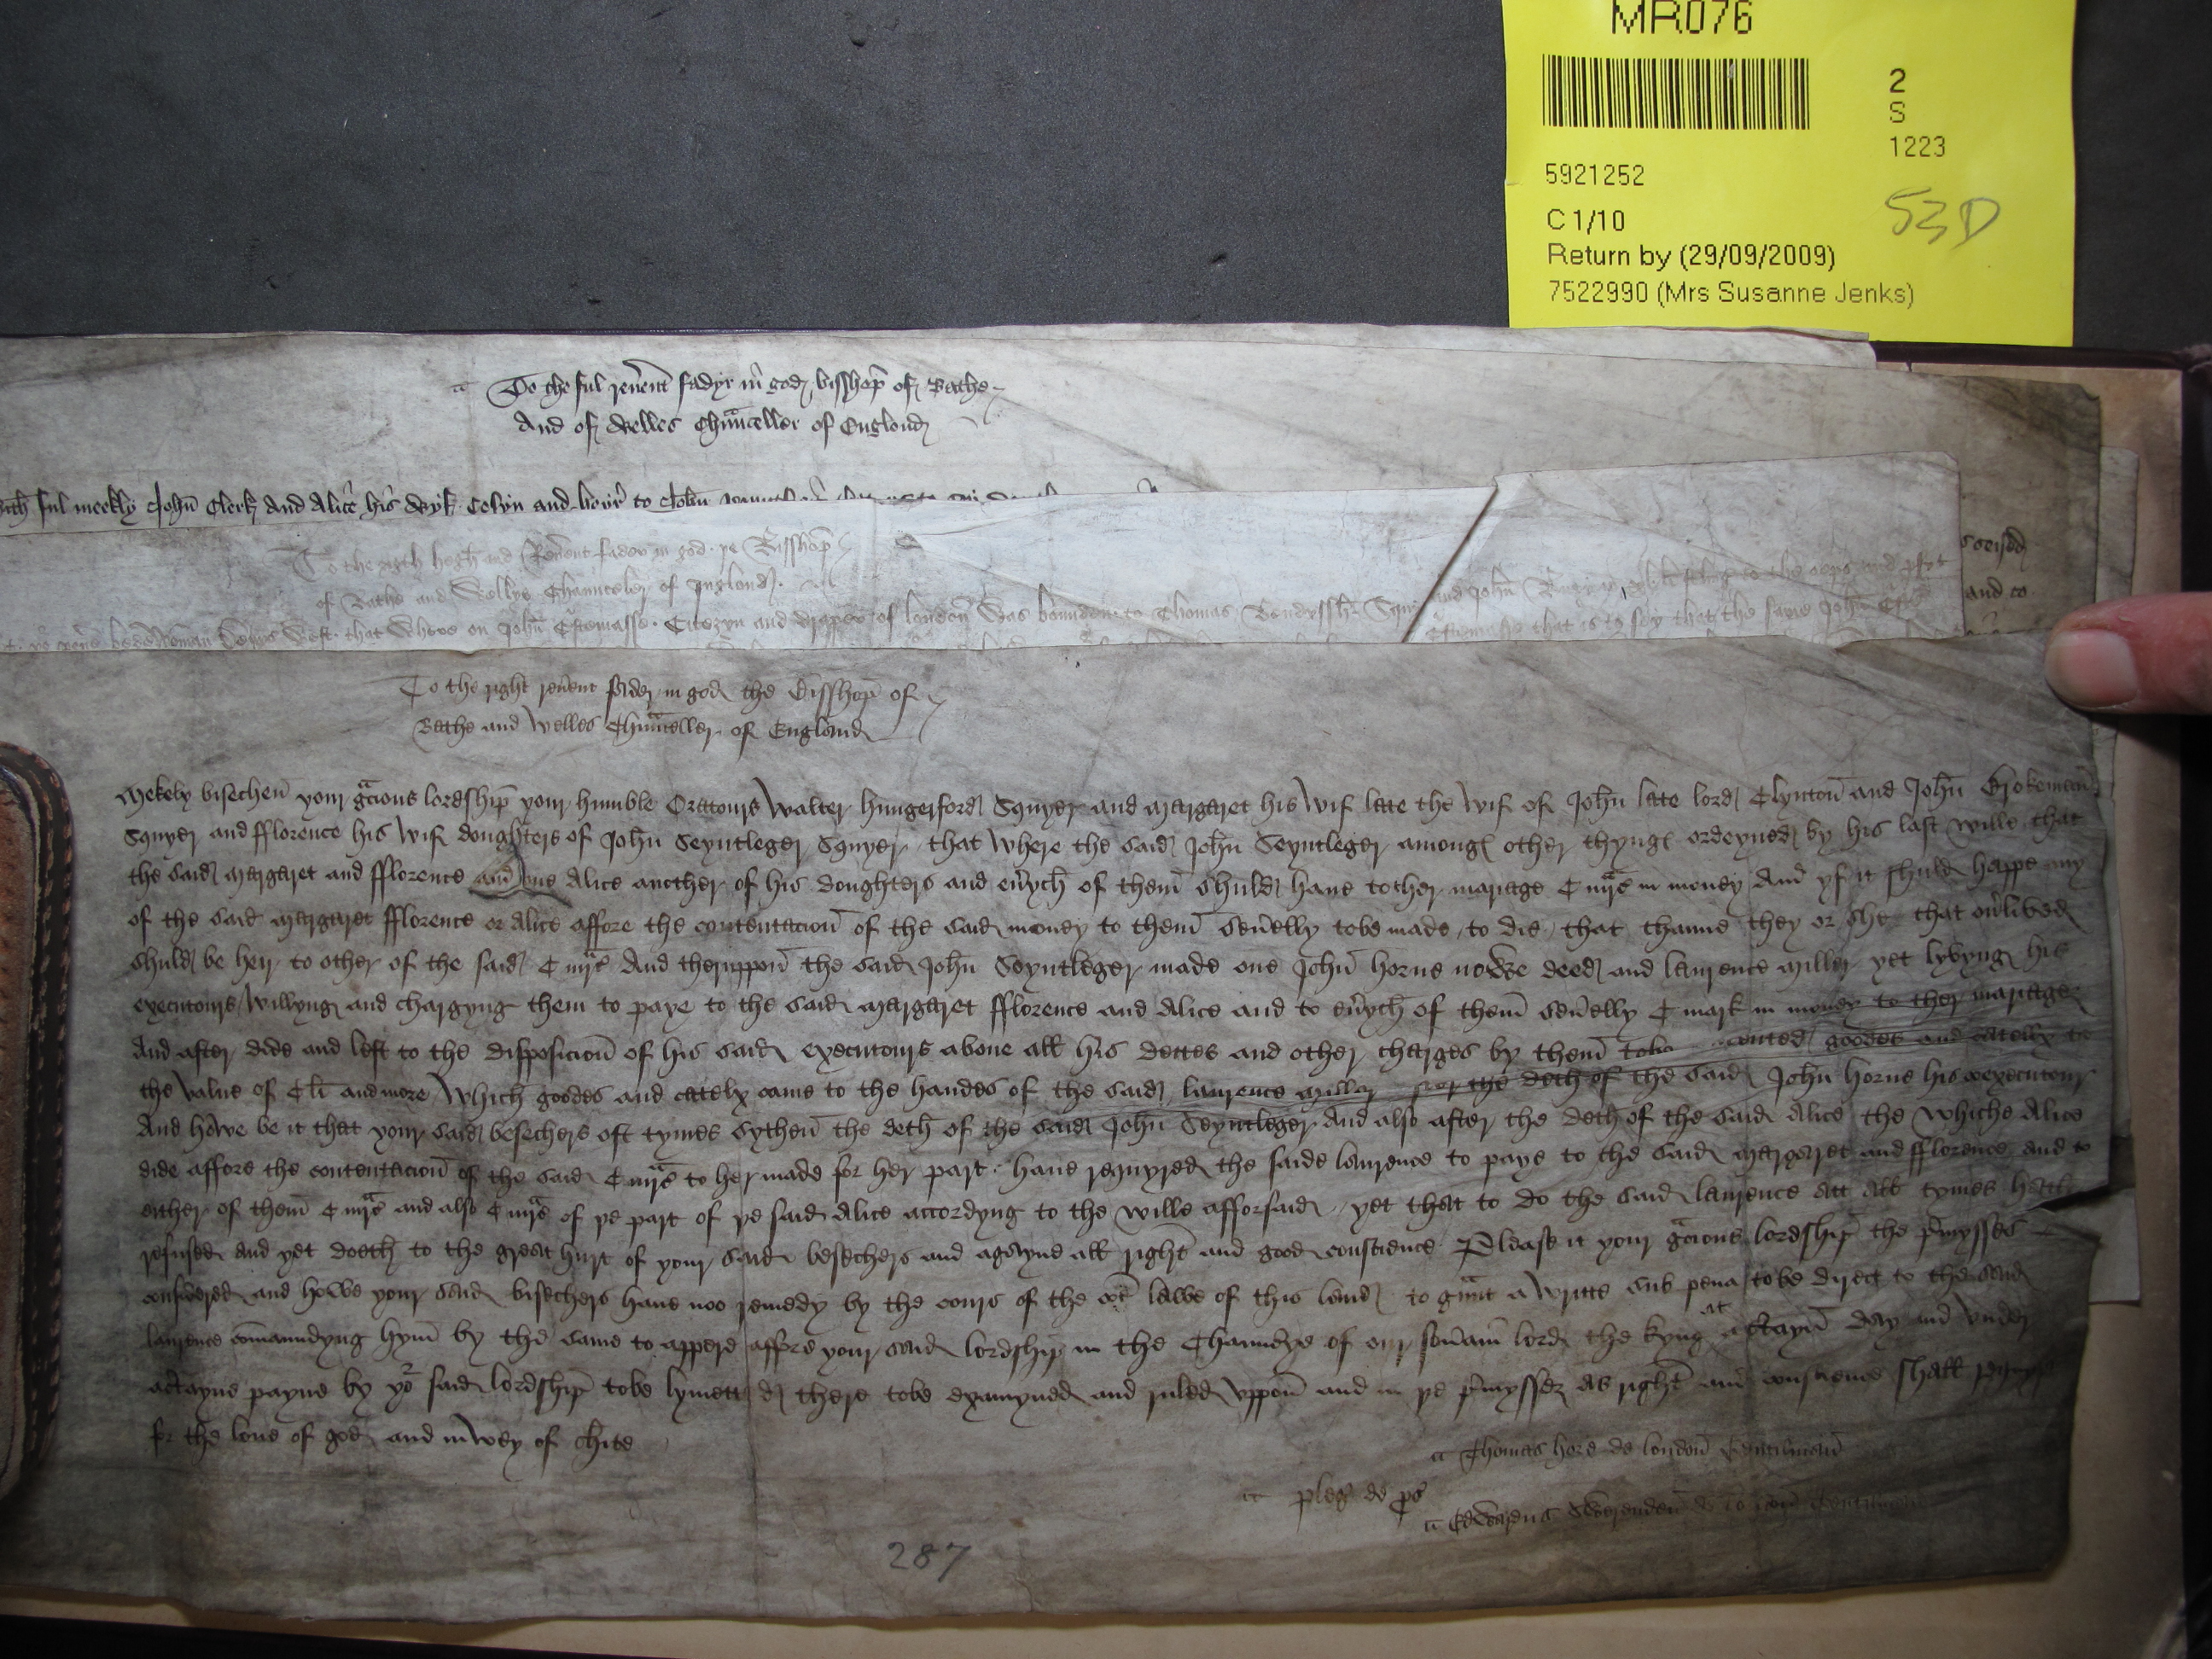 MR076
2
S
1223
5921252
53D
C 1/10
Return by (29/09/2009)
7522990 (Mrs Susanne Jenks)
To the ful reu'ent fadyr in god bisshop of Bathe
And of Welles Chaunceller of Englond
ful mekly John Clerk And Alice his Wyf Cosyn and heyr to John
To the rigth hogh and Reu'ent fader in god ye Bisshop
of Bathe and Wellys Chaunceler of Inglond
that Where on John Citezyn and draper of london Was bounden to Thomas and John
that is to sey that the same John
and to
To the right reu'ent fader in god the Bisshop of
Bathe and Welles Chaunceller of England
Mekely bisechen your gracious lordship your humble Oratours Walter hungerford Squyer and Margaret his Wif late the Wif of John late lord Clynton and John
Squyer and fflorence his Wif doughters of John Seyntleger Squyer that Where the said John Seyntleger among other thyng ordeyned by his last wille that
the said Margaret and fflorence and one Alice another of his doughters and eu'ych of them shuld haue to ther mariage C mrc in money And yf it shuld happe any
of the said Margaret fflorence or Alice affore the contentacion of the said money to them seu'elly tobe made to die that thanne they or she that ou'lived
shuld be heir to other of the said C mrc And theruppon the said John Seyntleger made one John horne nowe deed and laurence Miller yet lyvyng his
executours Willyng and chargyng them to paye to the said Margaret fflorence and Alice and to eu'ych of them seu'elly C mark in money to ther mariage
And after dide and left to the disposicion of his said executours aboue all his dettes and other charges by them tobe goodes and catelly to
the value of C li and more Which goodes and catelx came to the handes of the said laurence Miller the deth of the said John horne his coexecutour
And howe be it that your said besechers oft tymes sythen the deth of the said John Seyntleger And also after the deth of the said Alice the Whiche Alice
dide affore the contentacion of the said C mrc to her made for her part haue requyred the saide laurence to paye to the said Margaret and fflorence and to
either of them C mrc and also C mrc of ye part of ye said Alice accordyng to the wille afforsaid yet that to do the said laurence att all tymes hath
refused and yet doeth to the great hurt of your said besechers and agayne all right and good conscience Please it your gracious lordship the p'mysses
consid'ed and howe your said bisechers haue noo remedy by the cours of the co'e lawe of this land to graunt a Writte sub pena tobe direct to the said
laurence comaundyng hym by the same to appere affore your said lordship in the Chauncrye of our sou'ain lord the kyng at a c'tayn day and vnder
a c'tayne payne by yor said lordship tobe lymetted there tobe examyned and ruled vppon and in ye p'mysses as right and conscience shall
for the loue of god and in Wey of ch'ite
Thomas hore de london Gentilman
pleg' de pros'
Edwardus de london Gentilman
287